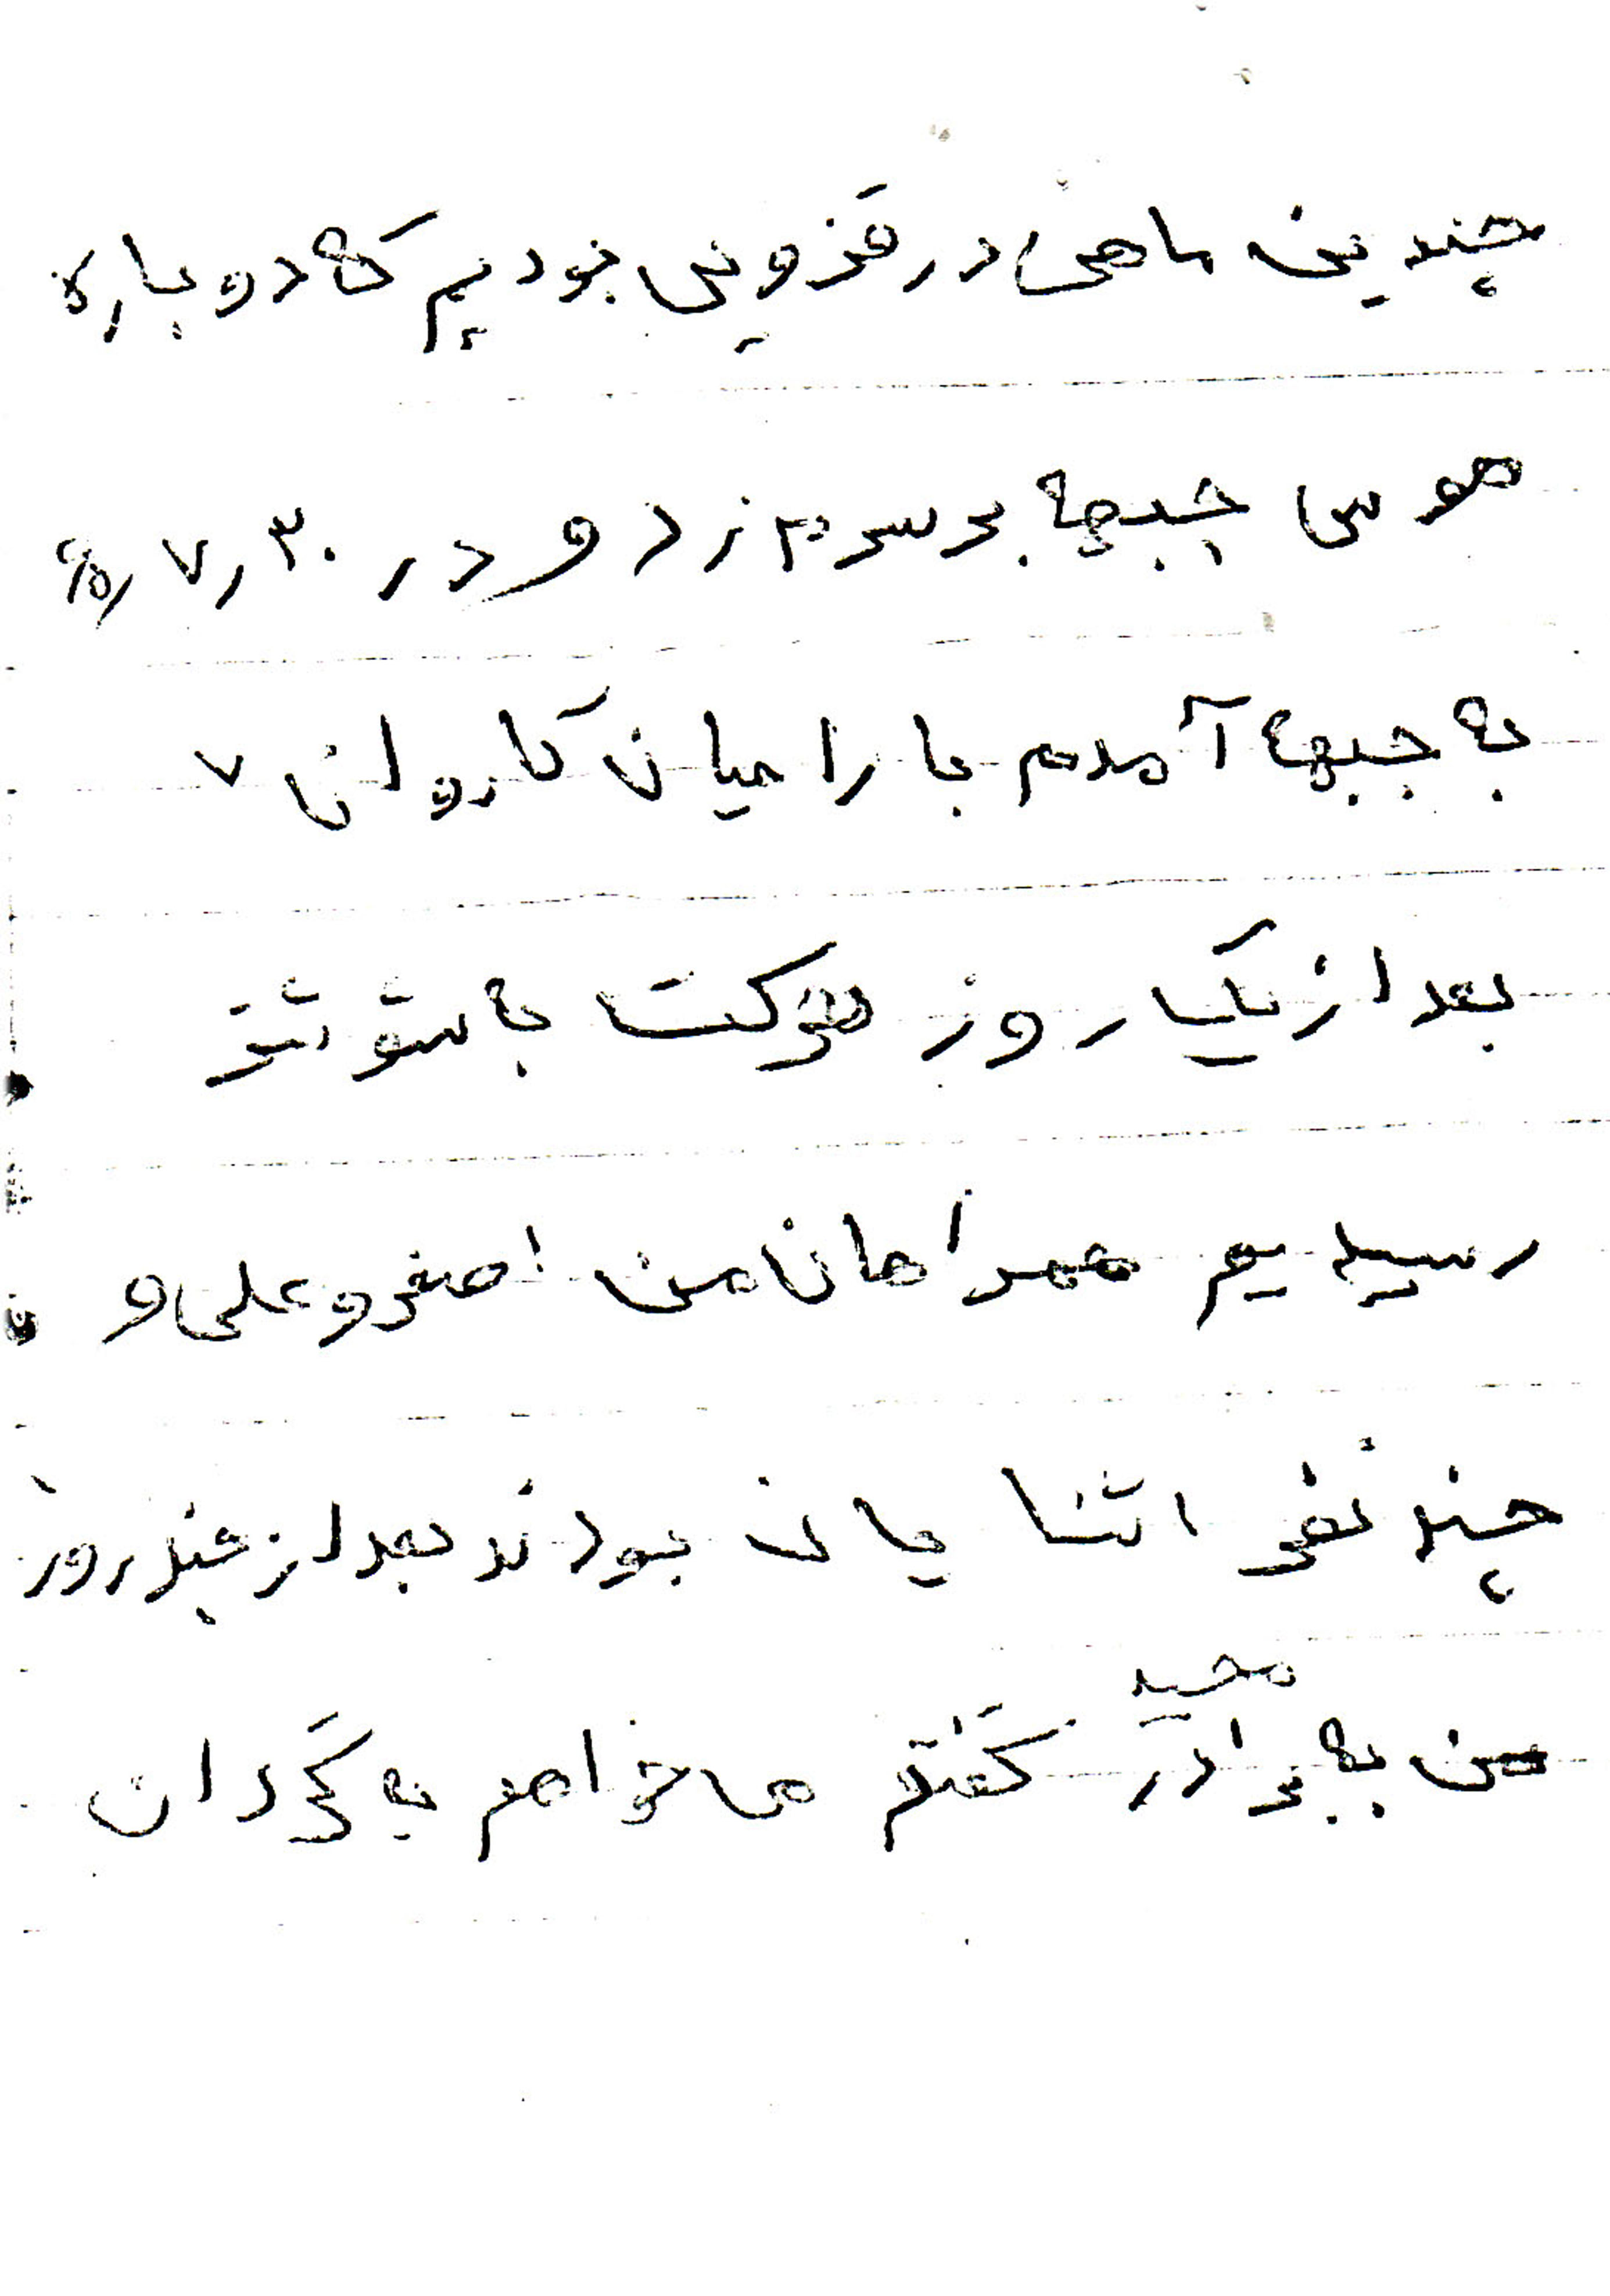 چندین ماهی در قزوین بودیم که دوباره
هوس جبهه بر سرم زد و در ۳۰ ر ۷ ر ۶۵
به جبهه آمدم با راهیان کاروان ۷
بعد از یک روز حرکت با شوشتر
رسیدیم همراهان من اصغر و علی و
چند نفر اشنا یان بودند بعد از چند روز
مجید
من به برادر گفتم می خواهم به گردان